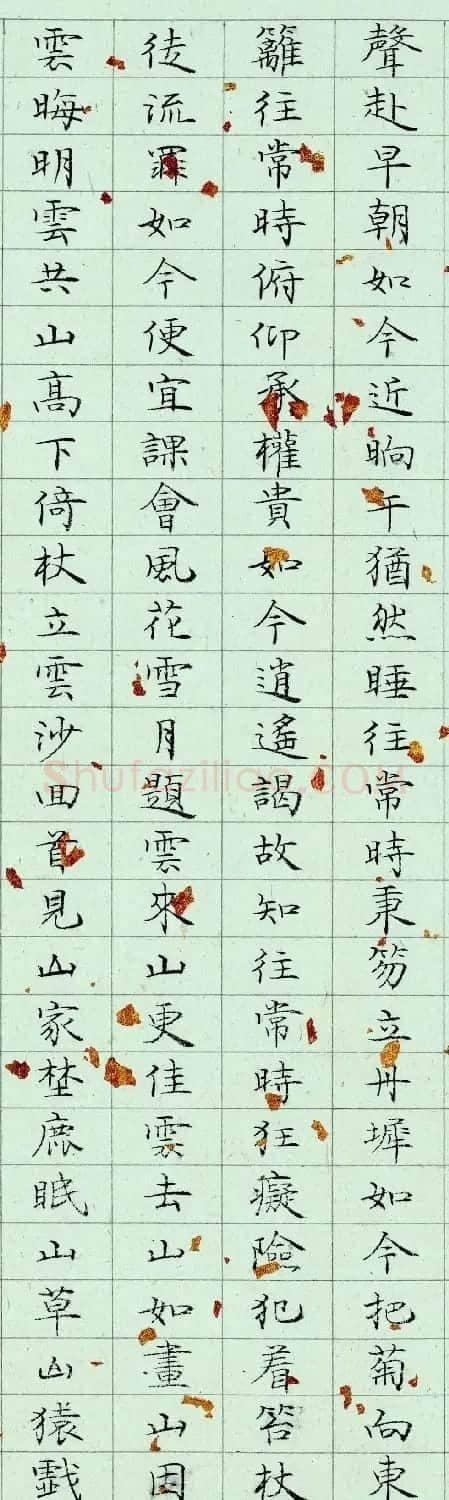 聲赴早朝如今近晌午猶然睡往常時秉笏立丹墀如今把菊向東
籬往常時俯仰承權貴如今逍遙謁故知往常時狂癡險犯着笞杖
徒流罪如今便宜課會風花雪月題雲來山更佳雲去山如畫山因
雲晦明雲共山高下倚杖立雲沙回首見山家埜鹿眠山草山猿戲
Shufaziliao.com